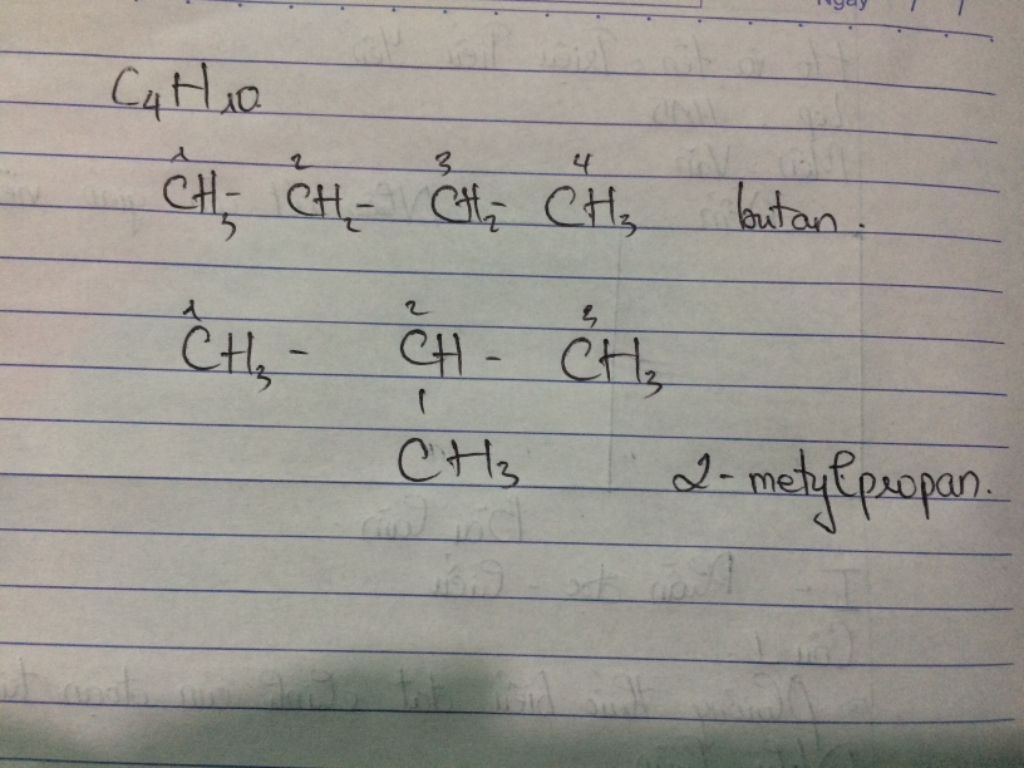 Ngày / /
C₄H₁₀
1 2 3 4
CH₃- CH₂- CH₂- CH₃ butan.
1 2 3
CH₃ - CH - CH₃
|
CH₃ 2-metylpropan.